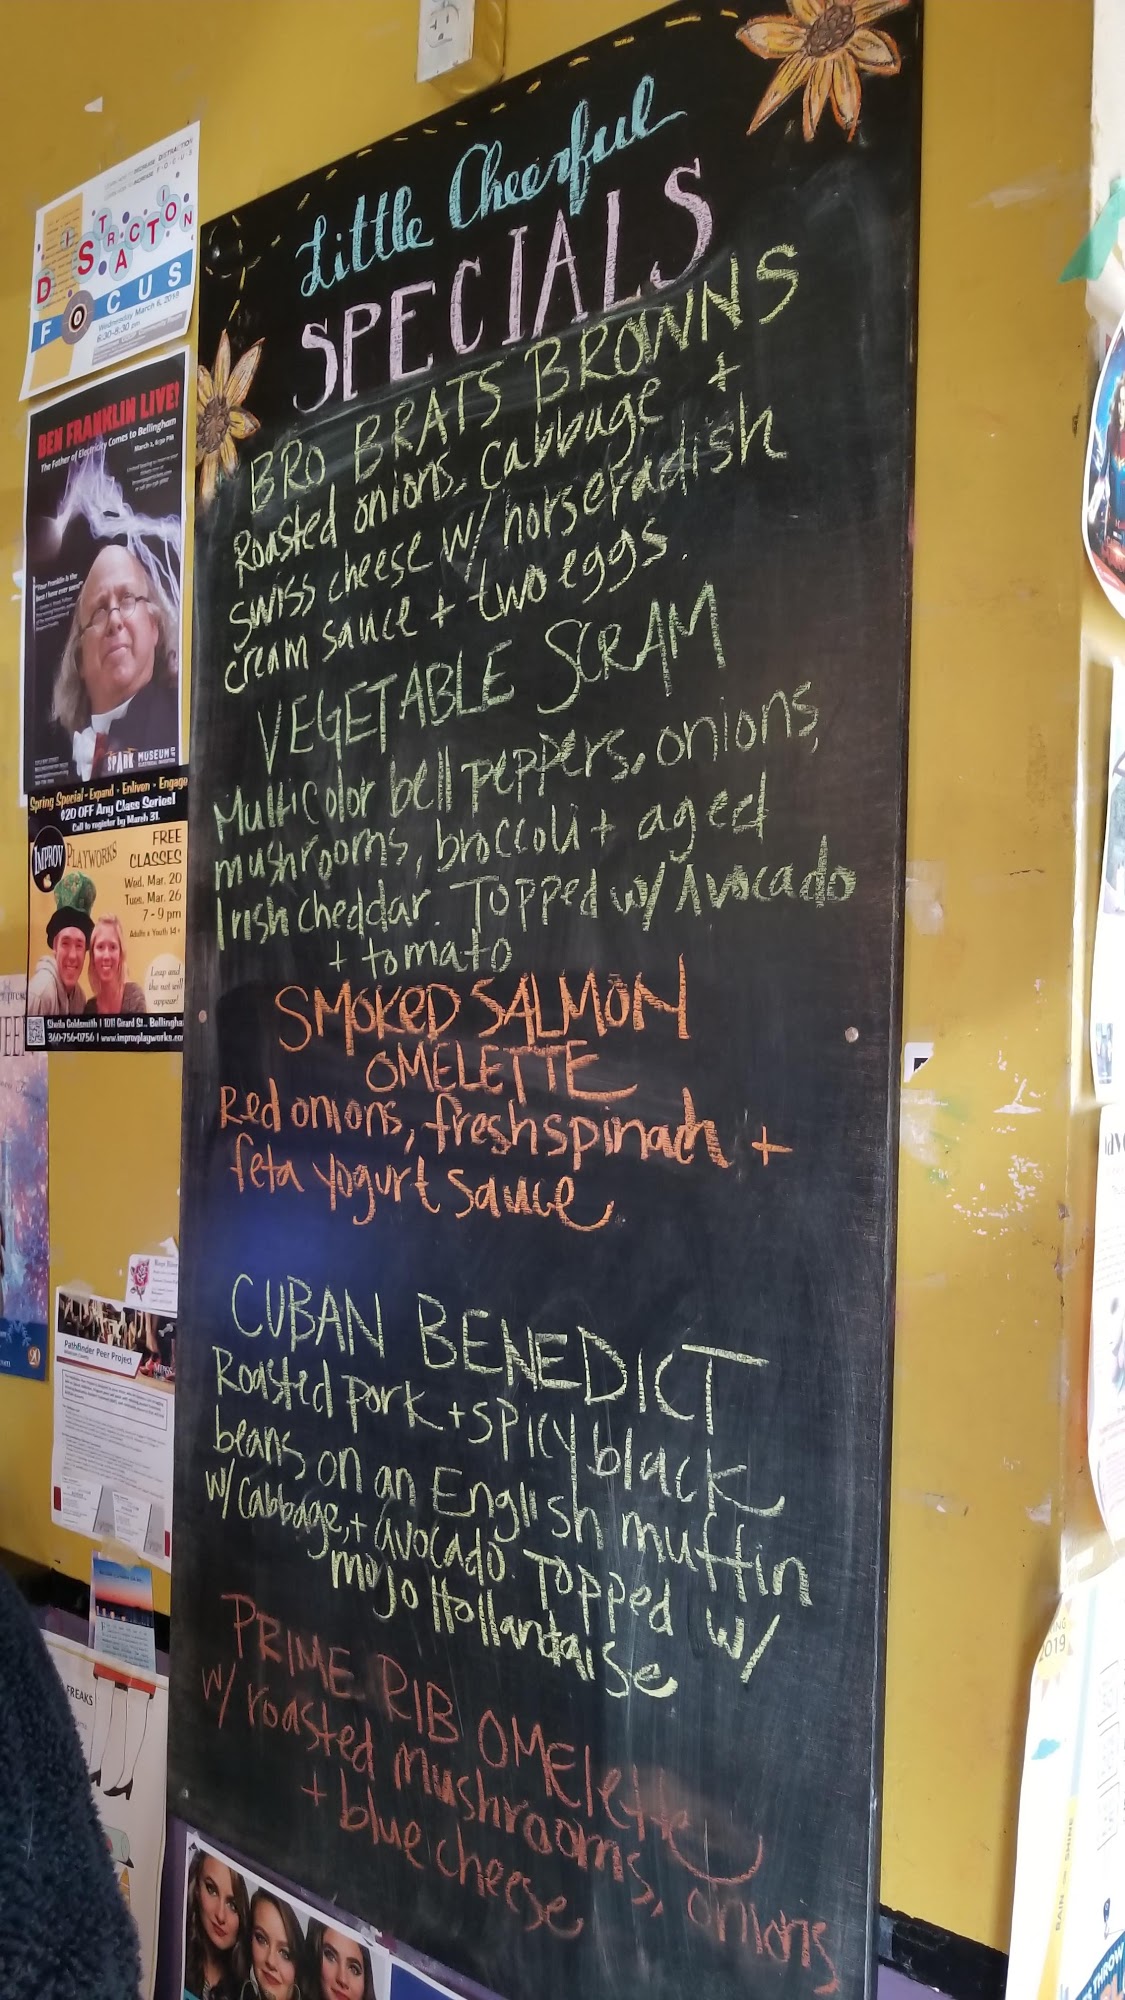 Little Cheerful
SPECIALS
BRO BRATS BROWNS
Roasted onions, cabbage +
swiss cheese w/ horseradish
cream sauce + two eggs.
VEGETABLE SCRAM
Multicolor bell peppers, onions,
mushrooms, broccoli + aged
Irish cheddar. Topped w/ Avocado
+ tomato
SMOKED SALMON
OMELETTE
Red onions, fresh spinach +
feta yogurt sauce
CUBAN BENEDICT
Roasted pork + spicy black
beans on an English muffin
w/ cabbage, + avocado. Topped w/
mojo Hollandaise
PRIME RIB OMElette
w/ roasted mushrooms, onions
+ blue cheese
DISTRACTION
FOCUS
Wednesday March 6, 2019
6:30-8:30 pm
BEN FRANKLIN LIVE!
The Father of Electricity Comes to Bellingham
March 2, 6:30 PM
SPARK MUSEUM
Spring Special - Expand - Enliven - Engage
$20 OFF Any Class Series!
Call to register by March 31.
IMPROV PLAYWORKS
FREE
CLASSES
Wed, Mar. 20
Tues, Mar. 26
7 - 9 pm
Adults & Youth 14+
Leap and
the net will
appear!
Sheila Goldsmith | 1011 Girard St., Bellingha
360-756-0756 | www.improvplayworks.co
Pathfinder Peer Project
FREAKS
2019
RAIN or SHINE
THROW